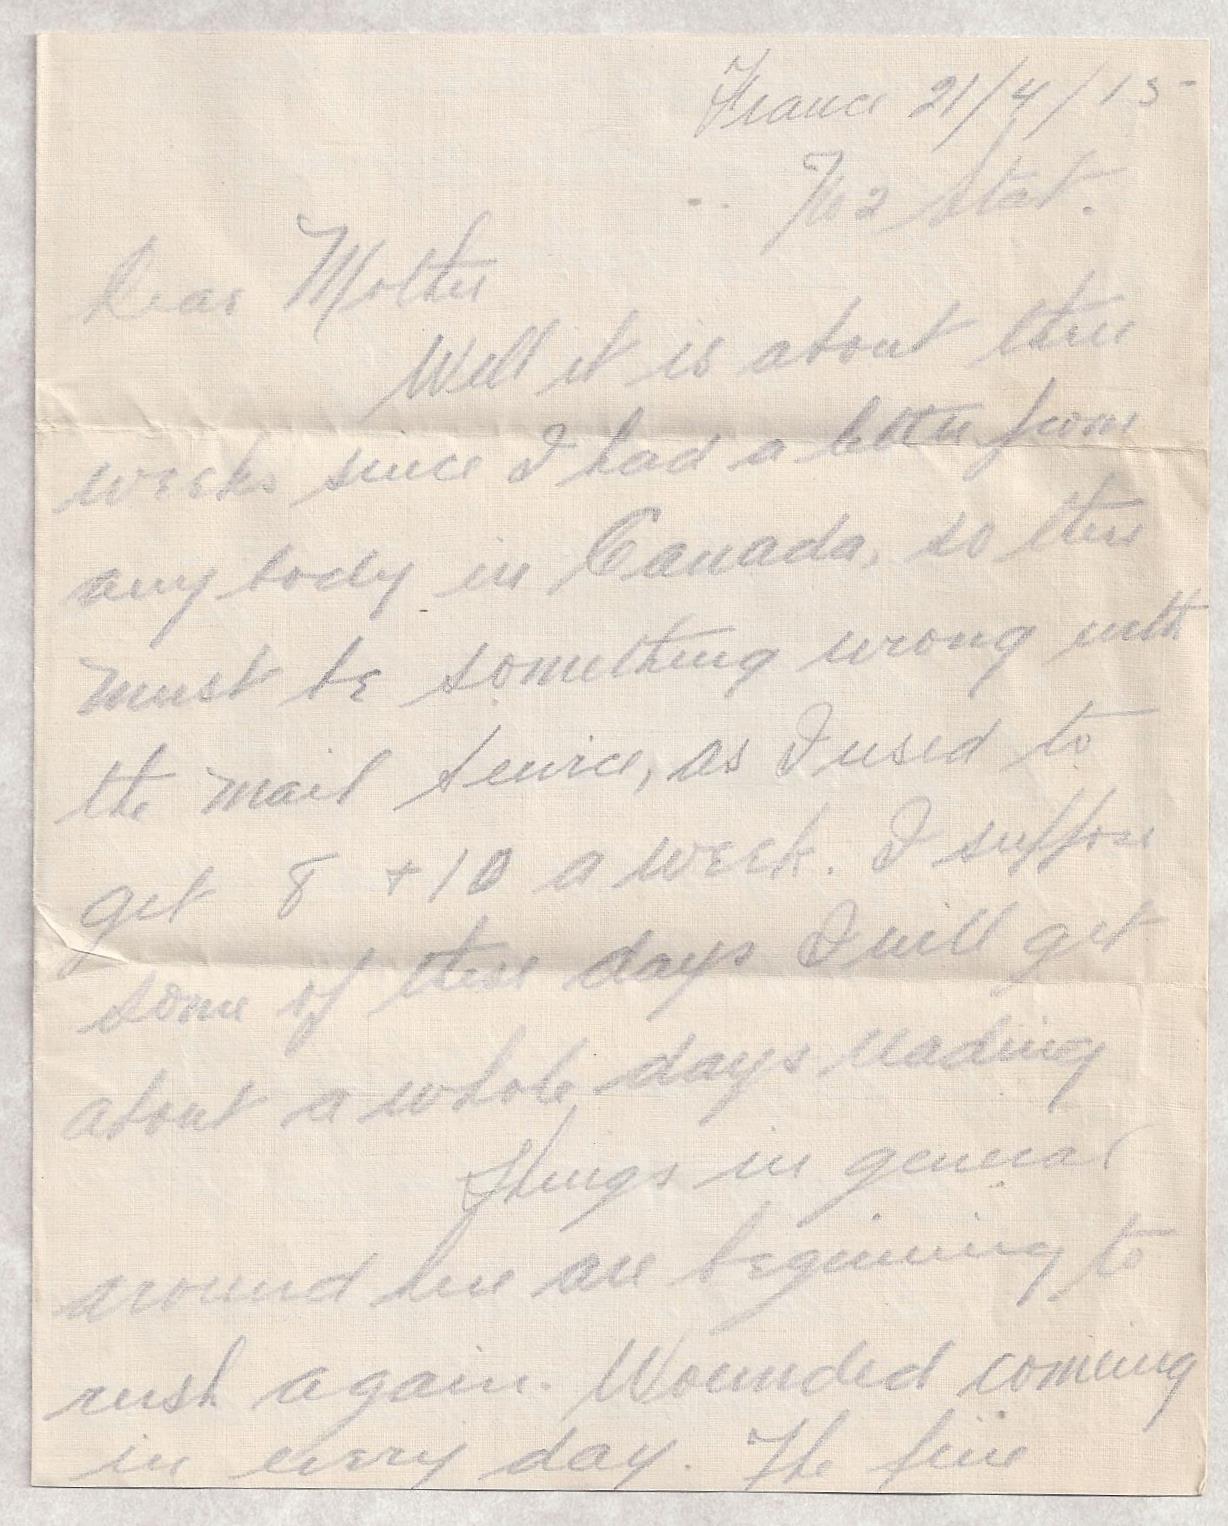 France 21/4/15
No 2 Stat.
Dear Mother
Well it is about three
weeks since I had a letter from
any body in Canada, so there
must be something wrong with
the mail service, as I used to
get 8 + 10 a week. I suppose
some of these days I will get
about a whole days reading
Things in general
around here are beginning to
rush again. Wounded comeing
in every day. The fine